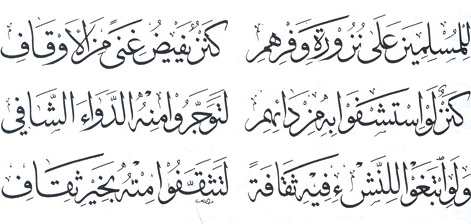 للمسلمين على نزورة وفرهم كنز يفيض غنى من الأوقاف
كنز لو استشفوا به من دائهم لتوجروا منه الدواء الشافي
ولو ابتغوا للنشء فيه ثقافة لتثقفوا منه بخير ثقاف